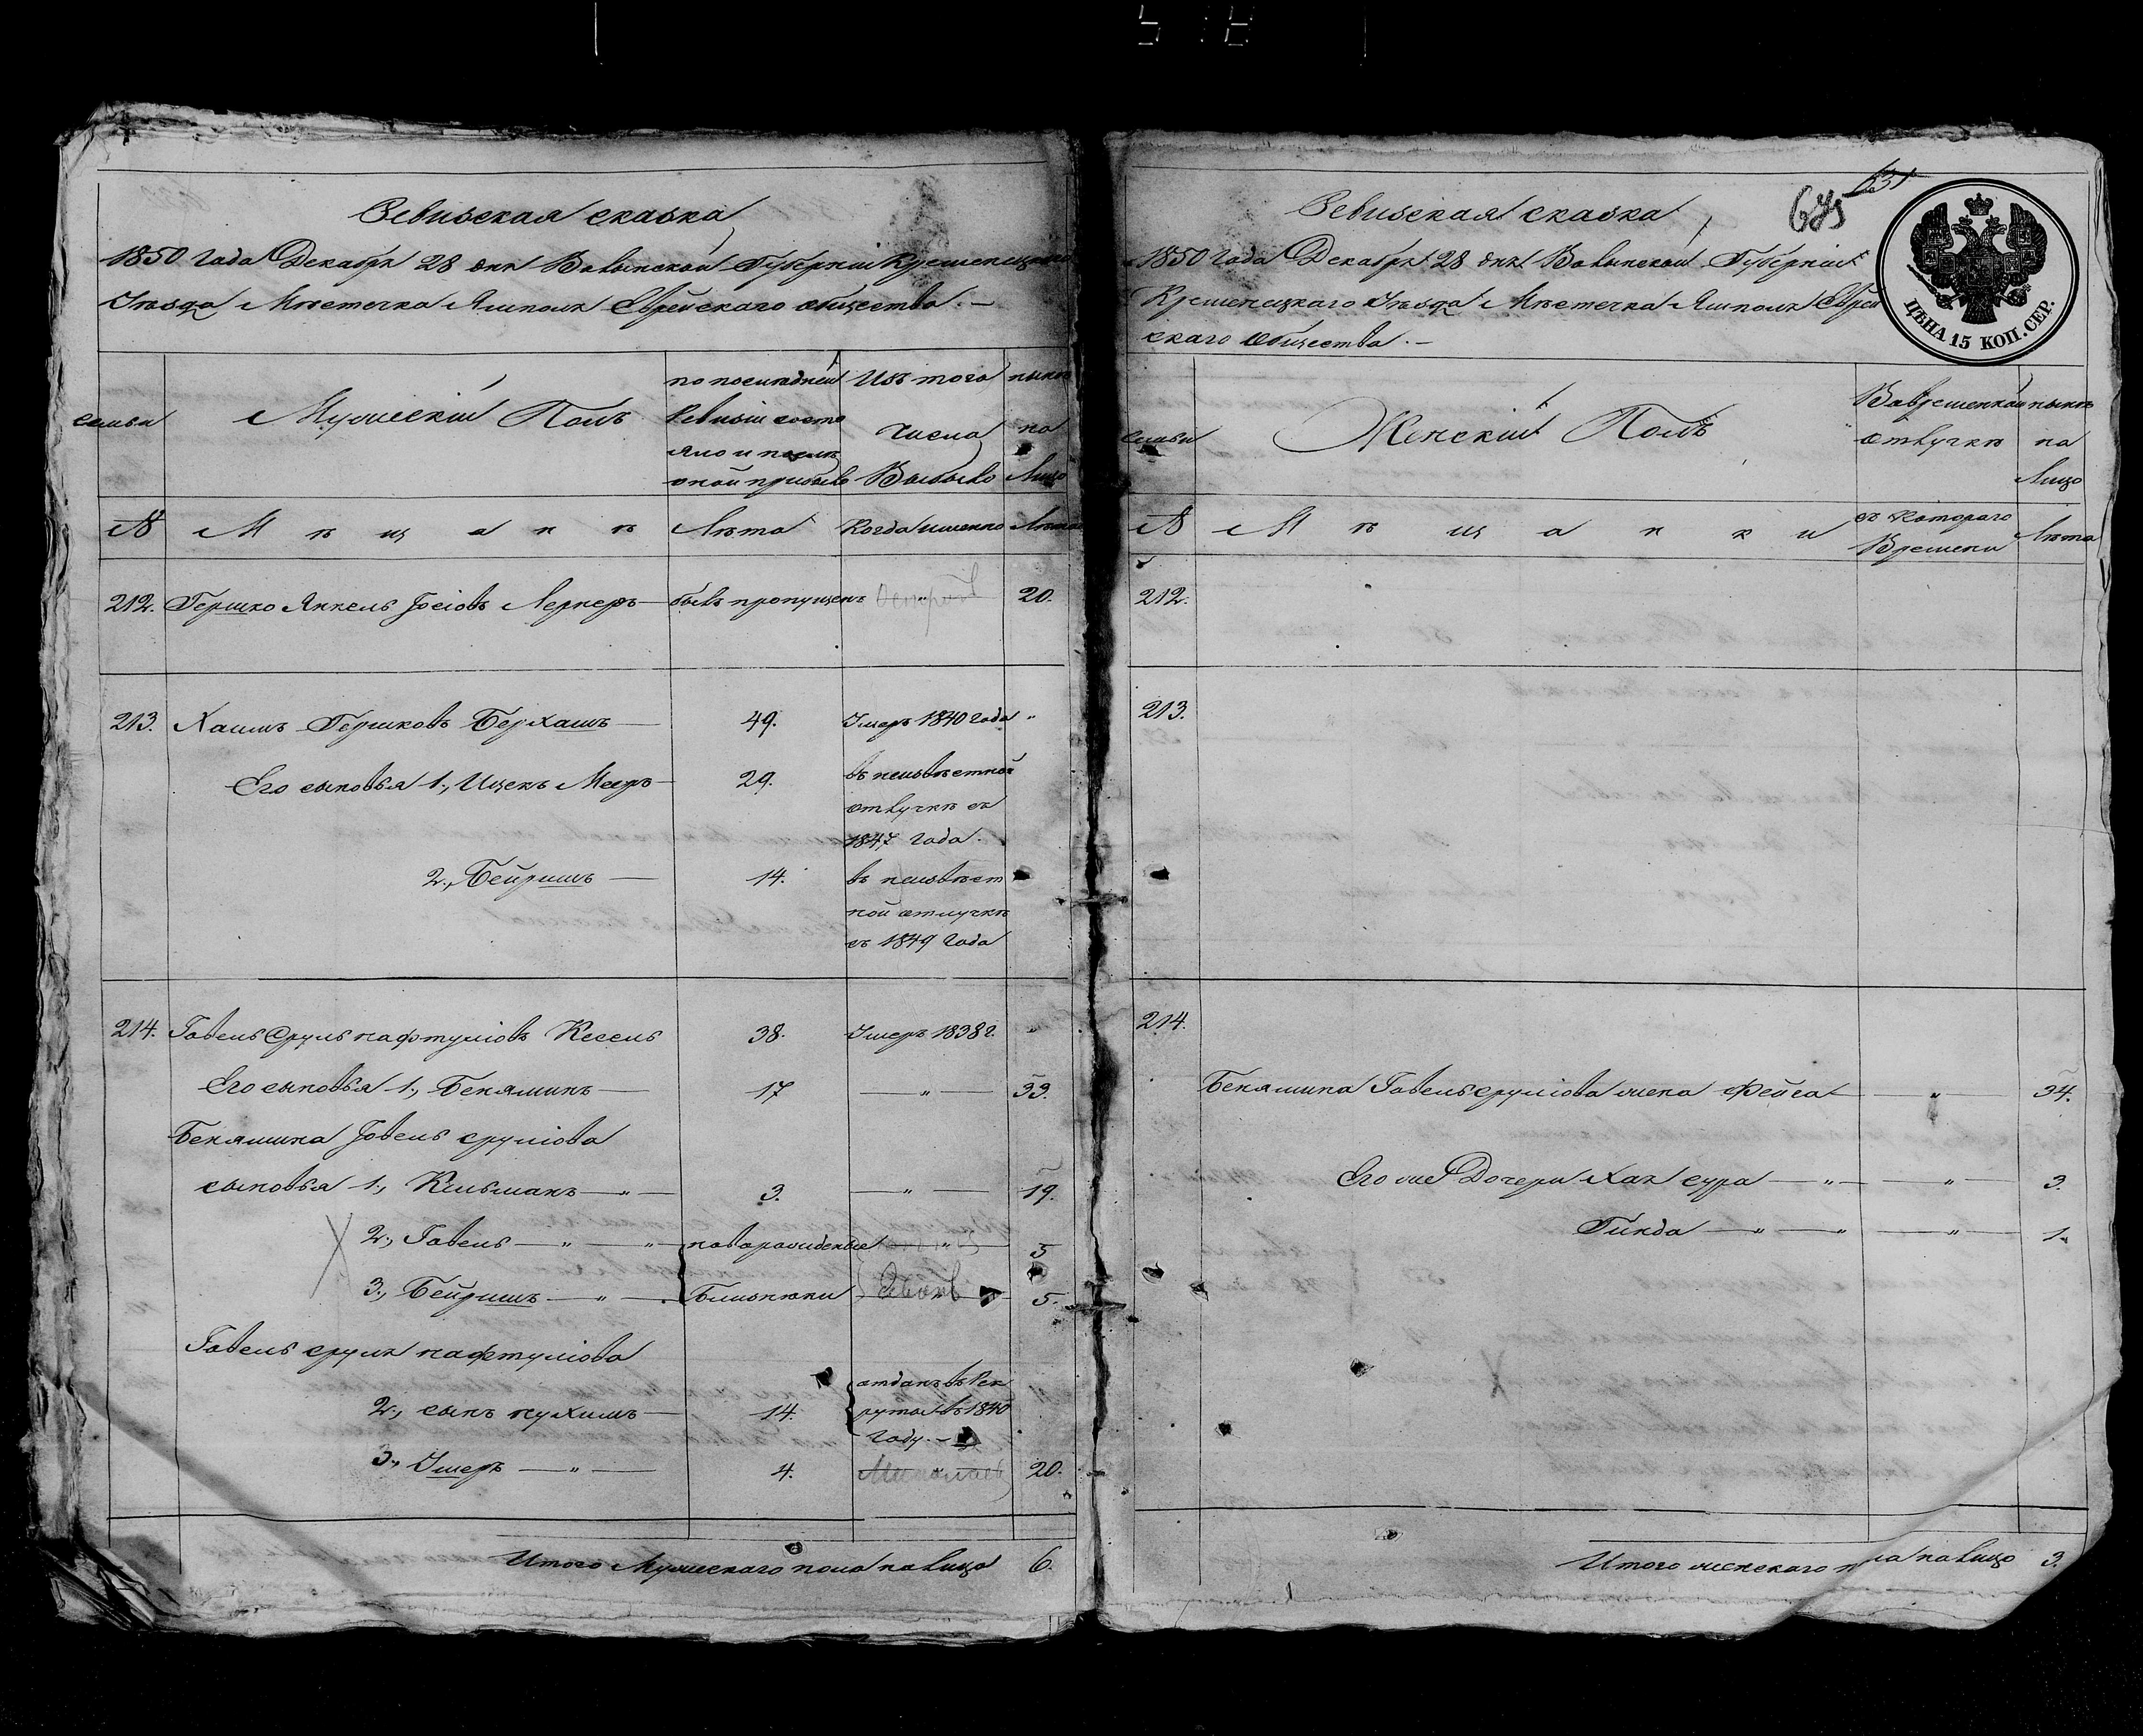 Ревизская сказка
1850 года Декабря 28 дня Волынской Губерніи Кременецкаго
Уѣзда Мѣстечка Ямполя Еврейскаго общества. —
семьи
Мужескій Полъ
по послѣдней
Ревизіи состо
яло и послѣ
оной прибыло
Изъ того
числа
Выбыло
нынѣ
на
Лицо
№
М ѣ щ а н ѣ
Лѣта
Когда именно
Лѣта
212. Гершко Янкель Іосіовъ Лернеръ — былъ пропущенъ " 20.
213. Хаимъ Гершковъ Берхашъ — 49. Умеръ 1840 года "
Его сыновья 1., Ицекъ Мееръ — 29. въ неизвѣстной
отлучкѣ съ
1847 года.
2., Бейришъ — 14. въ неизвѣст
ной отлучкѣ
съ 1849 года
214. Іовель Сруль нафтуліовъ Кесель 38. Умеръ 1838 г. "
Его сыновья 1., Беняминъ — 17 — " — 33.
Бенямина Іовель сруліова
сыновья 1., Кельманъ — " — 3. — " — 19.
2., Іовель — " — " — новорожденые — " — 5
3., Бейришъ — " — Близнюки 5.
Іовель сруля нафтуліова
2., сынъ нухимъ — 14. отданъ въ Рек
руты въ 1840
году. —
3., Умеръ — " — 4. 20.
Итого Мужескаго пола на лицо 6.
Ревизская сказка
675
631
1850 года Декабря 28 дня Волынской Губерніи
Кременецкаго Уѣзда Мѣстечка Ямполя Еврей
скаго общества. —
ЦѢНА 15 КОП. СЕР.
семьи
Женскій Полъ
Вовременной
отлучкѣ
нынѣ
на
Лицо
№
М ѣ щ а н к и
съ котораго
Времени
Лѣта
212.
213.
214.
Бенямина Іовельсруліова жена Фейга — " — 34.
Его же Дочери Хая сура — " — " — 3.
Гинда — " — " — " — 1.
Итого женскаго пола на лицо 3.